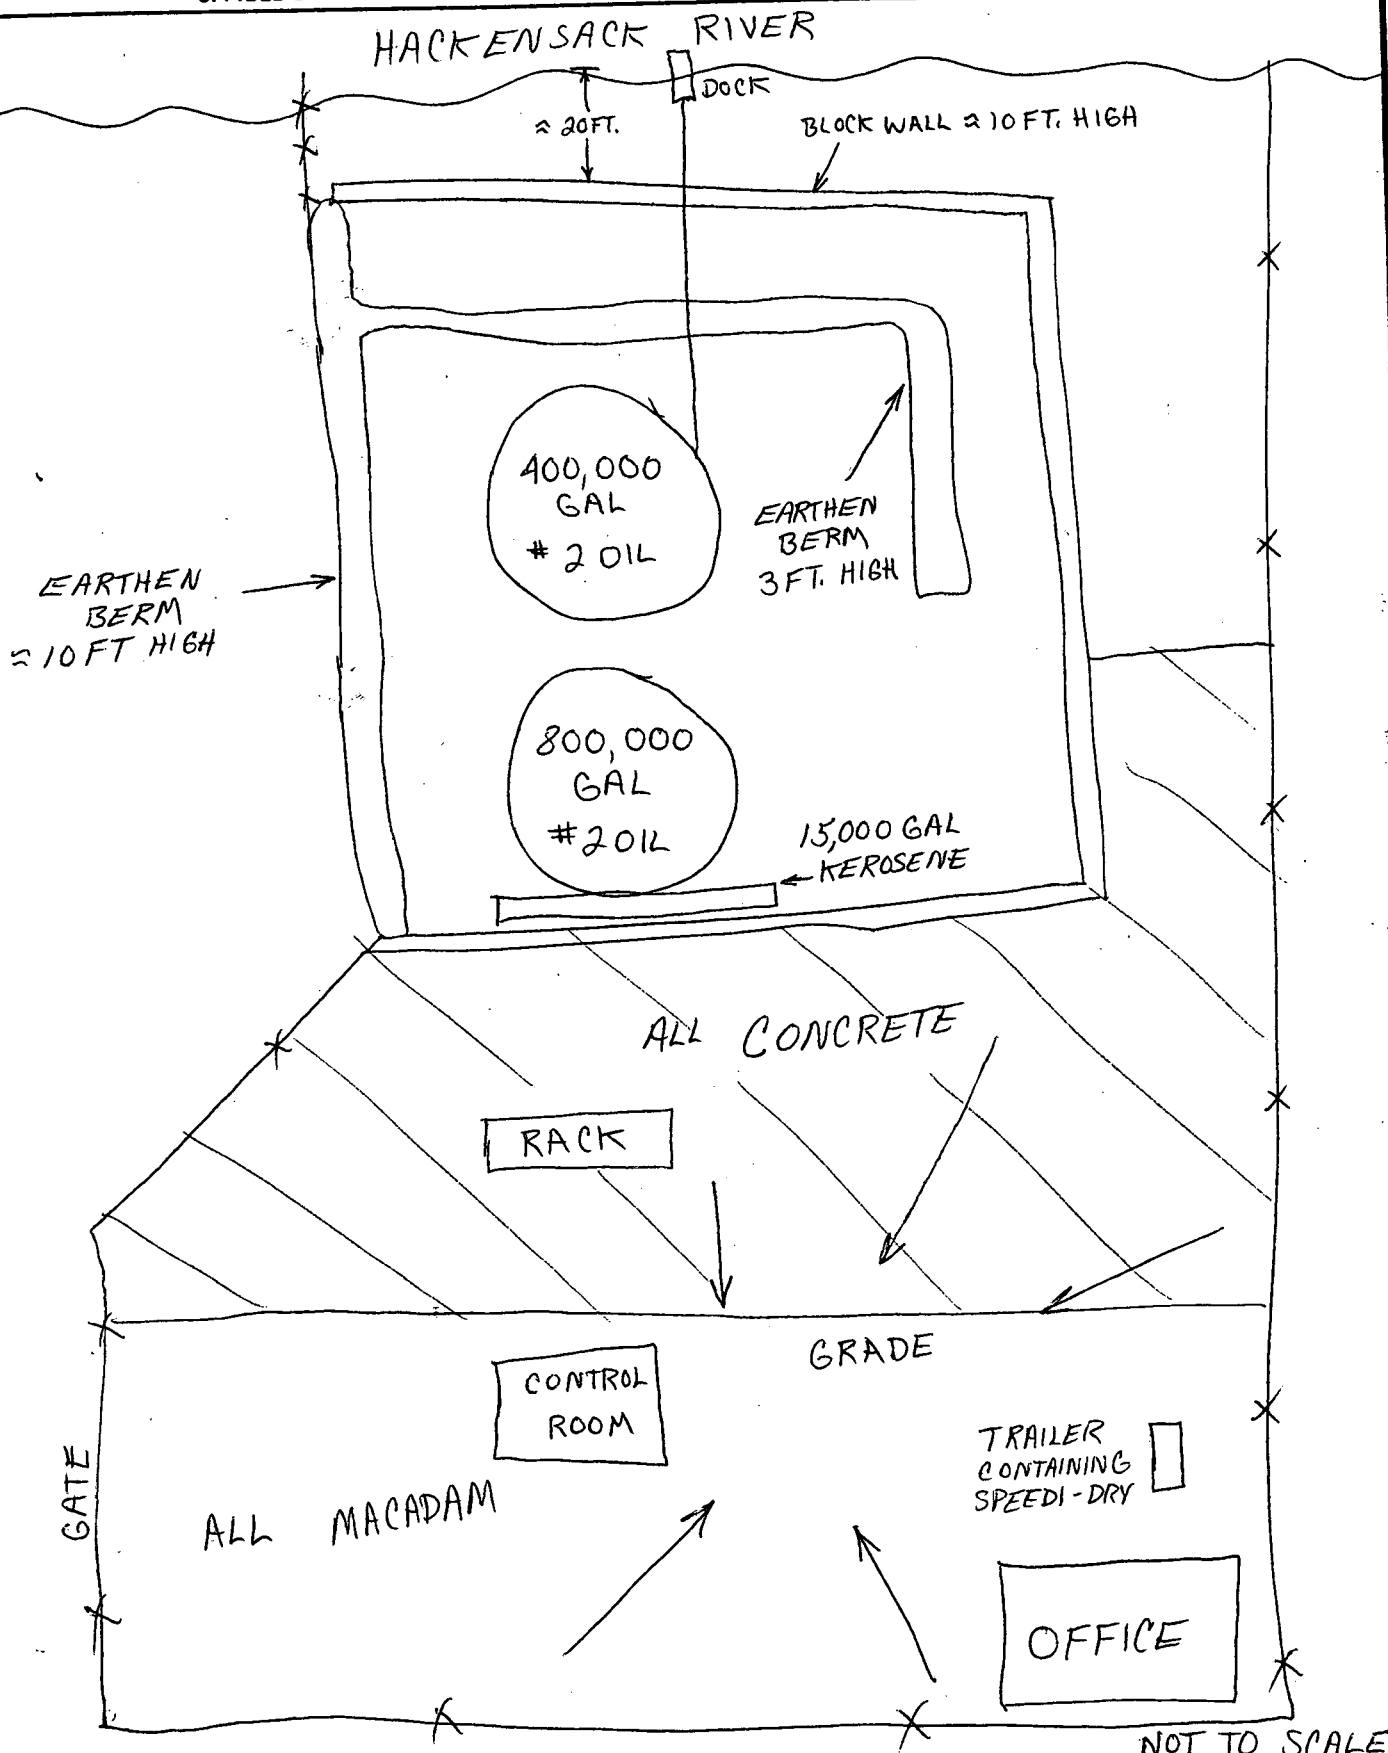 HACKENSACK RIVER
DOCK
≈ 20FT.
BLOCK WALL ≈ 10 FT. HIGH
400,000
GAL
# 2 OIL
EARTHEN
BERM
3 FT. HIGH
EARTHEN
BERM
≈ 10 FT HIGH
800,000
GAL
# 2 OIL
15,000 GAL
KEROSENE
ALL CONCRETE
RACK
GRADE
CONTROL
ROOM
TRAILER
CONTAINING
SPEEDI-DRY
GATE
ALL MACADAM
OFFICE
NOT TO SCALE